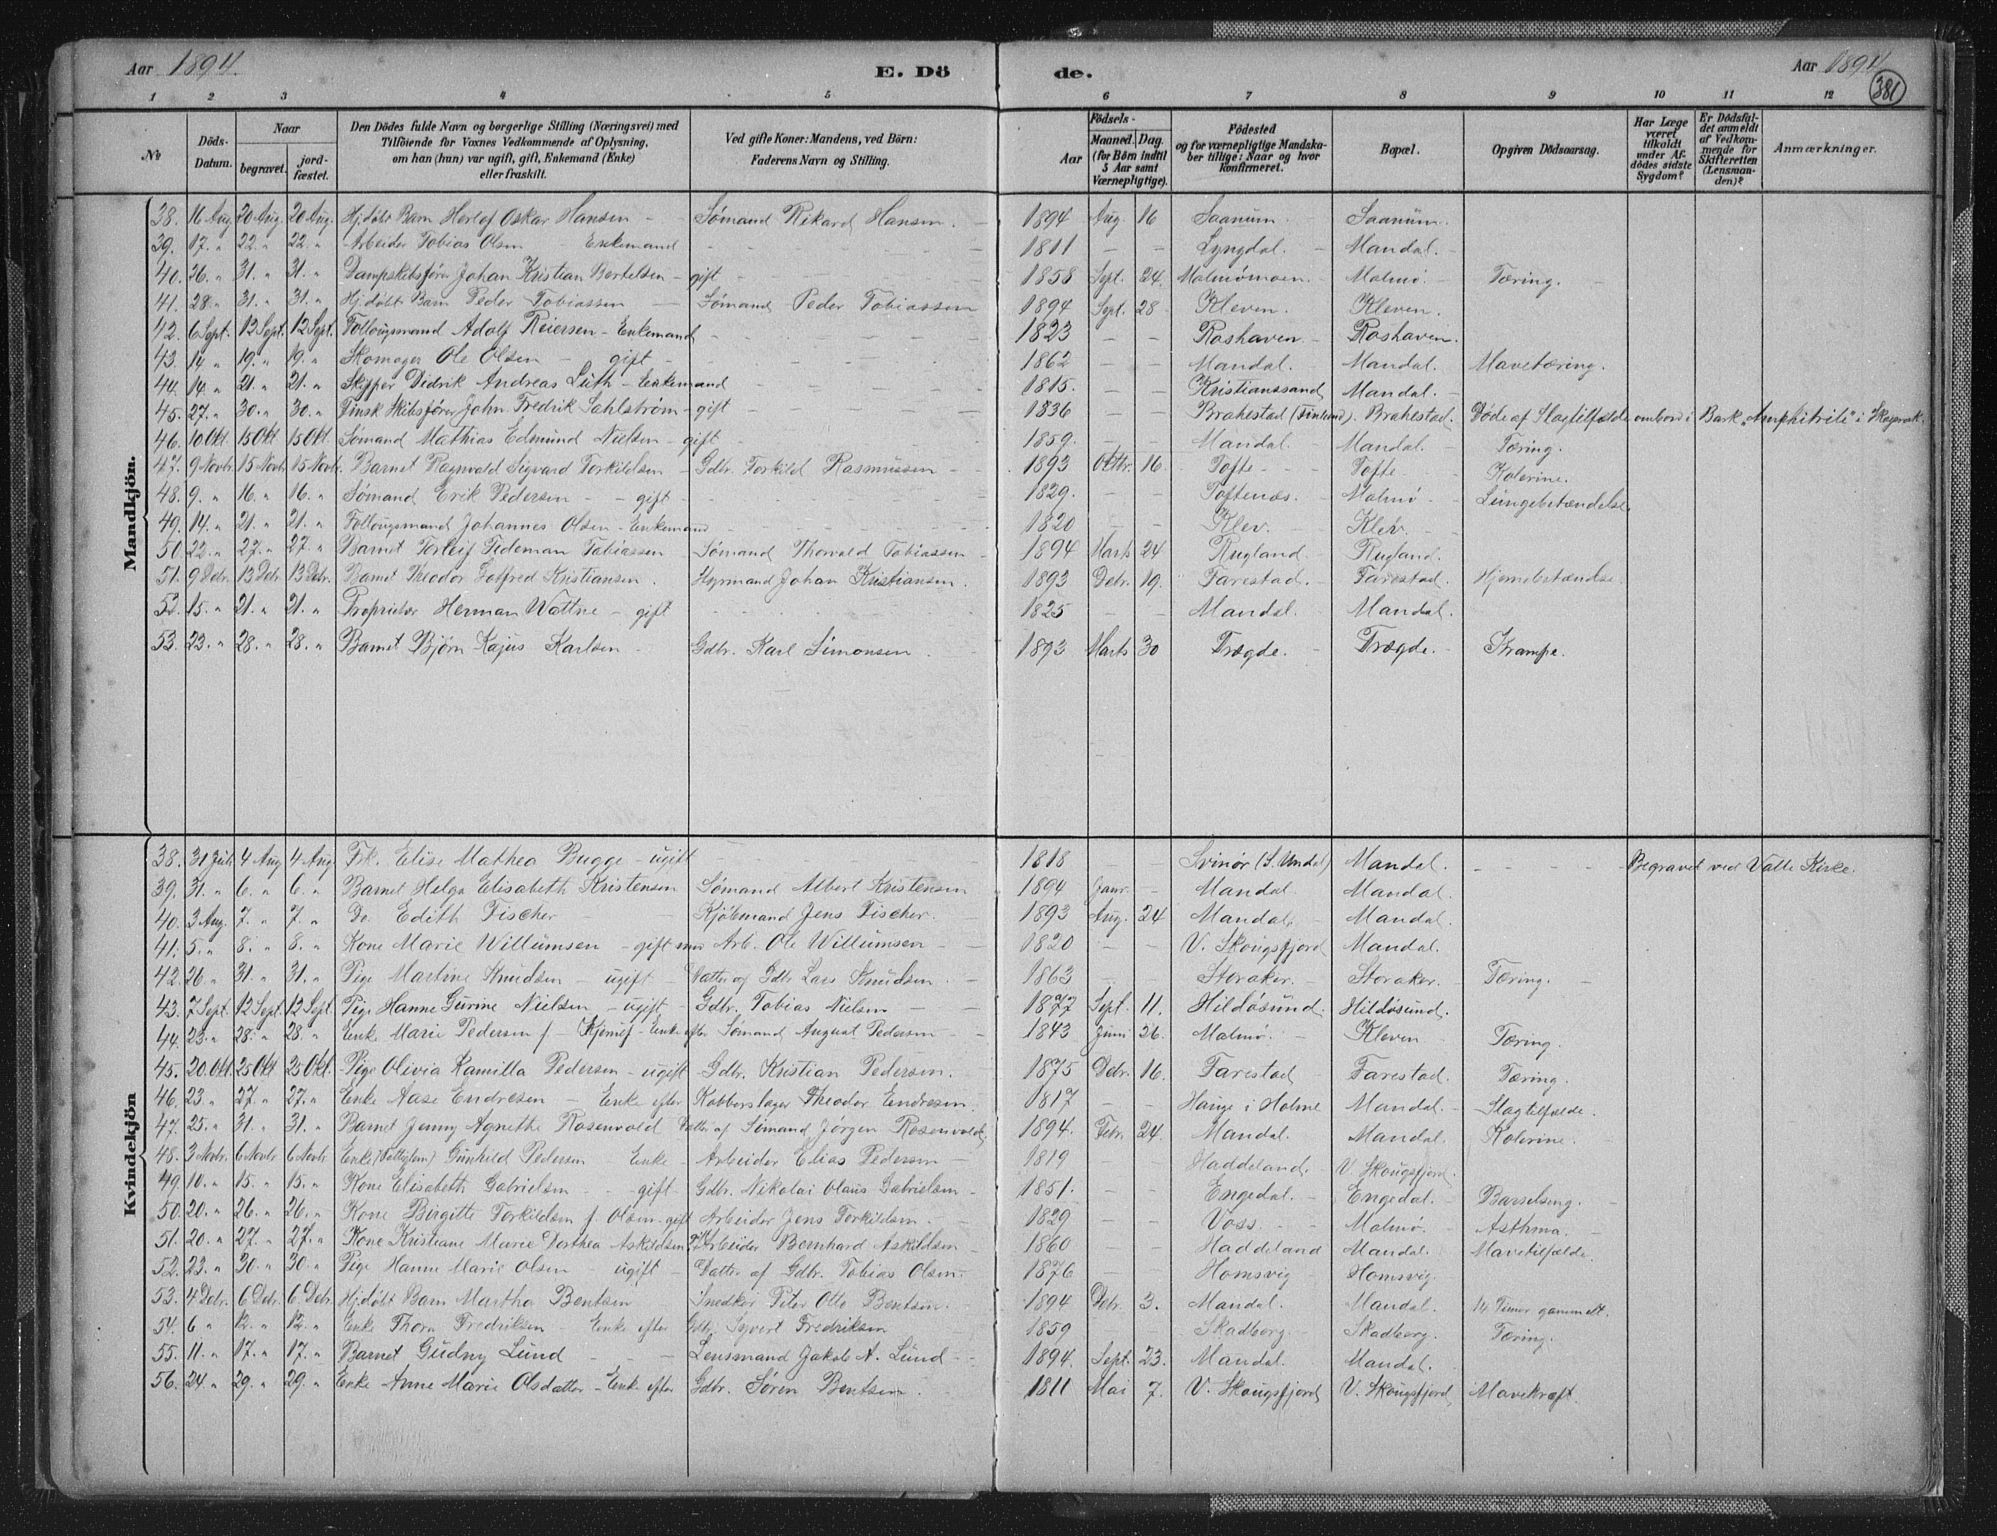 Aar 1894. E. Dö de. Aar 1894
381
1 2 3 4 5 6 7 8 9 10 11 12
No Döds-Datum. Naar begravet. jord-fæstet. Den Dödes fulde Navn og borgerlige Stilling (Næringsvei) med Tilföiende for Voxnes Vedkommende af Oplysning, om han (hun) var ugift, gift, Enkemand (Enke) eller fraskilt. Ved gifte Koner: Mandens, ved Börn: Faderens Navn og Stilling. Födsels- Aar Maaned. Dag. (for Börn indtil 5 Aar samt Værnepligtige). Födested og for værnepligtige Mandskaber tillige: Naar og hvor Konfirmeret. Bopæl. Opgiven Dödsaarsag. Har Læge været tilkaldt under Afdödes sidste Sygdom? Er Dödsfaldet anmeldt af Vedkommende for Skifteretten (Lensmanden)? Anmærkninger.
Mandkjön.
38. 16 Aug 20 Aug 20 Aug. Hj.døbt Barn Herlof Oskar Hansen - Sømand Rikard Hansen. 1894 Aug 16 Saanum. Saanum.
39. 17. " 22. " 22. " Arbeider Tobias Olsen - Enkemand 1811 Lyngdal. Mandal.
40. 26. " 31. " 31. " Dampskibsfører Johan Kristian Bertelsen - gift 1858 Sept. 24. Malmømoen Malmø. Tæring.
41. 28. " 31. " 31. " Hj.døbt Barn Peder Tobiassen - Sømand Peder Tobiassen 1894 Sept. 28 Kleven. Kleven.
42. 6 Sept. 12 Sept. 12 Sept. Follougsmand Adolf Reiersen - Enkemand 1823 Roshaven. Roshaven.
43. 14 " 19. " 19. " Skomager Ole Olsen - gift - 1862 Mandal. Mandal. Mavetæring.
44. 14 " 21. " 21. " Skipper Didrik Andreas Lüth - Enkemand 1815. Kristianssand Mandal.
45. 27. " 30. " 30. " Finsk Skibsfører John Fredrik Sahlstrøm - gift 1836 Brahestad (Finland). Brahestad. Døde af Slagtilfælde ombord i Bark "Amphitrite" i Skagerak.
46. 10 Okt. 15 Okt. 15 Okt. Sømand Mathias Edmund Nielsen - gift 1859. Mandal. Mandal. Tæring.
47. 9 Novbr. 15 Novbr 15 Novbr. Barnet Ragnvald Sigvard Torkildsen - Gdbr. Torkild Rasmussen 1893 Oktbr. 16. Tofte Tofte Kolerine.
48. 9. " 16. " 16. " Sømand Erik Pedersen - gift 1829. Toftenæs. Malmø Lungebetændelse
49. 14. " 21. " 21. " Follougsmand Johannes Olsen - Enkemand 1820 Klev. Klev.
50. 22. " 27. " 27. " Barnet Torleif Tideman Tobiassen Sømand Thorvald Tobiassen 1894 Marts 24 Rugland. Rugland.
51. 9 Debr. 13 Debr 13 Debr. Barnet Theodor Gotfred Kristiansen. Hyrmand Johan Kristiansen. 1893 Debr. 19. Farestad. Farestad. Hjernebetændelse.
52. 15. " 21. " 21. " Proprietær Herman Wattne - gift 1825 Mandal. Mandal.
53. 23. " 28. " 28. " Barnet Bjørn Kajus Karlsen Gdbr. Karl Simonsen. 1893 Marts 30 Trægde. Trægde. Krampe.
Kvindekjön
38. 31 Juli 4 Aug 4 Aug Frk. Elise Mathea Bugge - ugift 1818 Svinør (S. Undal) Mandal. Begravet ved Valle Kirke.
39. 31. " 6. " 6. " Barnet Helga Elisabeth Kristensen Sømand Albert Kristensen 1894 Janr. Mandal. Mandal
40. 3 Aug. 7. " 7. " Do Edith Fischer Kjøbmand Jens Fischer. 1893 Aug. 24 Mandal. Mandal.
41. 5. " 8. " 8. " Kone Marie Willumsen - gift med Arb. Ole Willumsen 1820 V. Skougsfjord Mandal.
42. 26 " 31. " 31. " Pige Martine Knudsen - ugift Datter af Gdbr Lars Knudsen. 1863 Storaker. Storaker. Tæring.
43. 7 Sept. 12 Sept. 12 Sept. Pige Hanne Gurine Nielsen - ugift Gdbr. Tobias Nielsen 1877 Sept. 11. Hildøsund. Hildøsund.
44. 23. " 28. " 28. " Enke Marie Pedersen f - Enke efter Sømand August Pedersen 1843 Juni 26. Malmø. Kleven Tæring.
45. 20. Okt. 25 Okt 25 Okt. Pige Olivia Kamilla Pedersen - ugift Gdbr. Kristian Pedersen. 1875 Debr. 16. Farestad Farestad. Tæring.
46. 23. " 27. " 27. " Enke Aase Endresen - Enke efter Kobberslager Theodor Endresen. 1817 Hauge i Holme Mandal. Slagtilfælde.
47. 25. " 31. " 31. " Barnet Jenny Agnethe Rosenvold Datter af Sømand Jørgen Rosenvold. 1894. Febr. 24. Mandal. Mandal. Kolerine.
48. 3 Novbr. 6 Novbr 6 Novbr Enke (Fattiglem) Gunhild Pedersen Enke - Arbeider Elias Pedersen 1819 Haddeland. V. Skougsfjord.
49. 10. " 15. " 15. " Kone Elisabeth Gabrielsen - gift Gdbr. Nikolai Olaus Gabrielsen 1851. Engedal. Engedal. Barselseng.
50. 20. " 26. " 26. " Kone Birgitte Torkildsen f Olsen. gift Arbeider Jens Torkildsen. 1829 Voss. Malmø. Asthma.
51. 20. " 27. " 27. " Kone Kristiane Marie Dorthea Askildsen Arbeider Bernhard Askildsen 1860 Haddeland Mandal. Mavetilfælde.
52. 23. " 30. " 30. " Pige Hanne Marie Olsen - ugift Datter af Gdbr. Tobias Olsen. 1876 Homsvig Homsvig
53. 4 Debr. 6 Debr. 6 Debr Hj.døbt Barn Martha Bentsen Snedker Peter Otto Bentsen. 1894 Debr. 3. Mandal. Mandal. 14 Timer gammelt.
54. 6 " 12. " 12. " Enke Thora Fredriksen - Enke efter Gdbr. Syvert Fredriksen 1859 Skadberg. Skadberg. Tæring.
55. 11. " 17. " 17. " Barnet Gudny Lund Lensmand Jakob A. Lund 1894. Sept. 23. Mandal. Mandal.
56. 24. " 29. " 29. " Enke Anne Marie Olsdatter - Enke efter Gdbr. Søren Bentsen. 1811 Mai 7. V. Skougsfjord V. Skougsfjord Mavekræft.